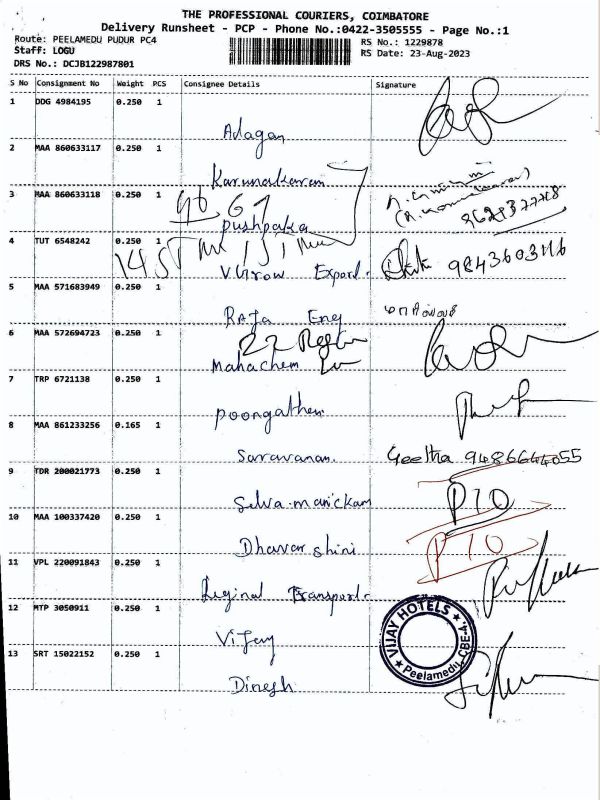 THE PROFESSIONAL COURIERS, COIMBATORE
Delivery Runsheet - PCP - Phone No.:0422-3505555 - Page No.:1
Route: PEELAMEDU PUDUR PC4
RS No.: 1229878
Staff: LOGU
RS Date: 23-Aug-2023
DRS No.: DCJB122987801
S No Consignment No Weight PCS Consignee Details Signature
1 DDG 4984195 0.250 1
Adagan
2 MAA 860633117 0.250 1
Karunakaran
3 MAA 860633118 0.250 1
9629377748
pushpaka
4 TUT 6548242 0.250 1
V Grow Export. 9843603116
5 MAA 571683949 0.250 1
RAJA Eng
6 MAA 572694723 0.250 1
Mahachem
7 TRP 6721138 0.250 1
poongathen
8 MAA 861233256 0.165 1
Saravanan. Geetha 9486644055
9 TDR 200021773 0.250 1
Selva.manickam PTO
10 MAA 100337420 0.250 1
Dhavarshini PTO
11 VPL 220091843 0.250 1
Reginal Transport.
12 MTP 3050911 0.250 1
VIJAY HOTELS
Peelamedu, CBE-4.
Vijay
13 SRT 15022152 0.250 1
Dinesh